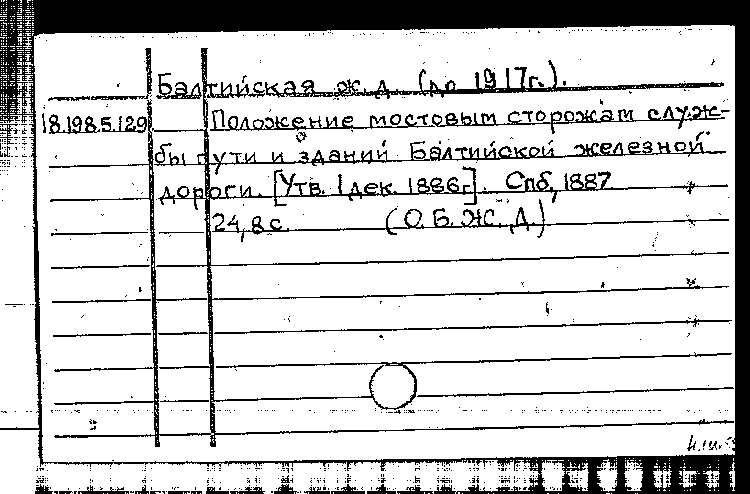 Балтийская ж. д. (до 1917г.).
18.198.5.129 Положение мостовым сторожам служ-
бы пути и зданий Балтийской железной
дороги. [Утв. 1 дек. 1886г]. Спб, 1887
24, 8 с. (О. Б. Ж. Д.)